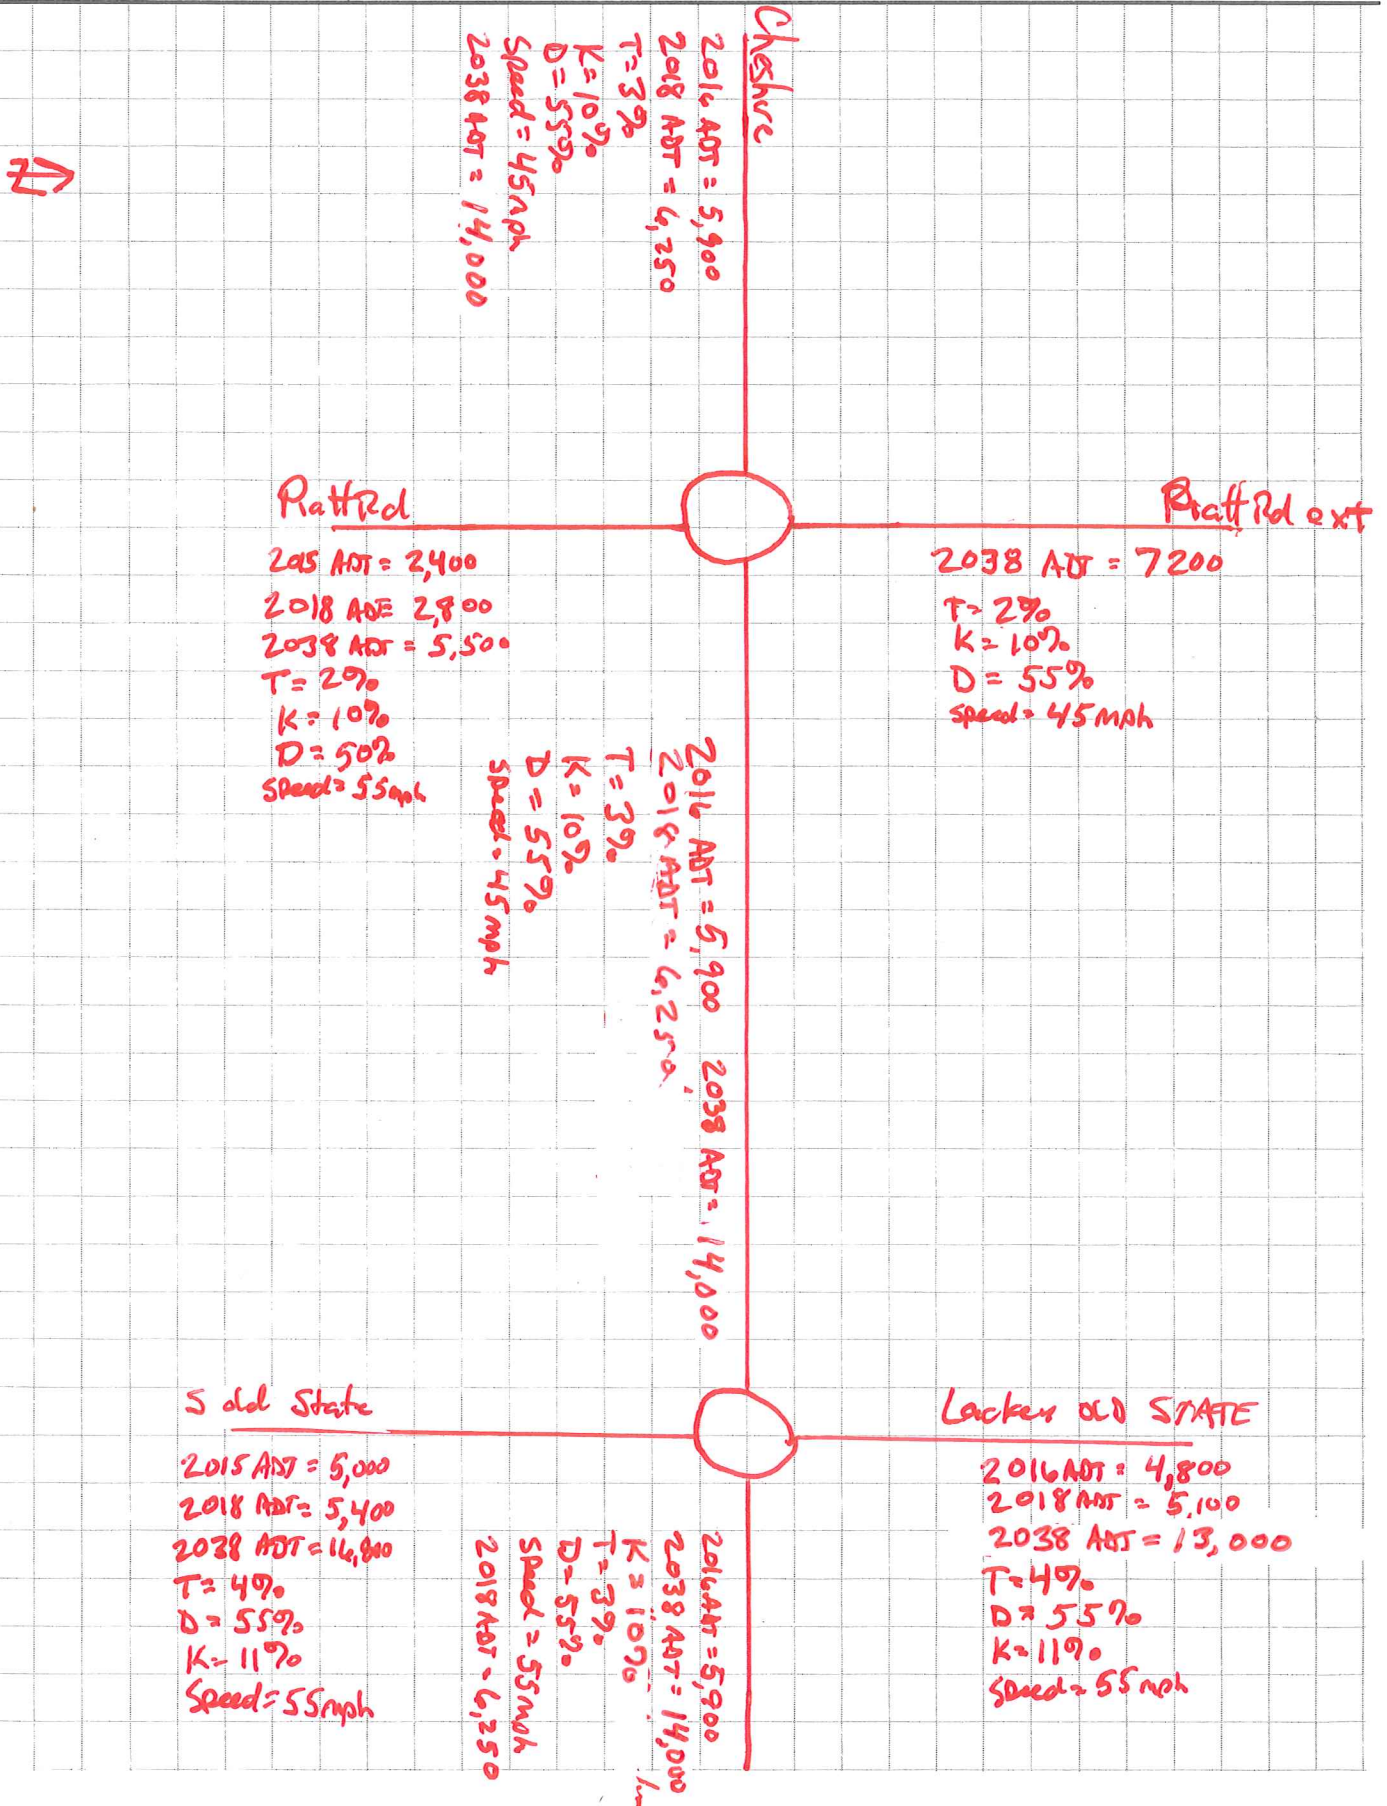 Cheshire
2016 ADT = 5,900
2018 ADT = 6,250
T = 3%
K = 10%
D = 55%
Speed = 45mph
2038 ADT = 14,000
Z
Piatt Rd
2015 ADT = 2,400
2018 ADT 2,800
2038 ADT = 5,500
T = 2%
K = 10%
D = 50%
Speed = 55mph
Piatt Rd ext
2038 ADT = 7200
T = 2%
K = 10%
D = 55%
speed = 45 mph
2016 ADT = 5,900 2038 ADT = 14,000
2018 ADT = 6,250
T = 3%
K = 10%
D = 55%
Speed = 45 mph
S old State
2015 ADT = 5,000
2018 ADT = 5,400
2038 ADT = 16,800
T = 4%
D = 55%
K = 11%
Speed = 55mph
OLD STATE
2016 ADT = 4,800
2018 ADT = 5,100
2038 ADT = 13,000
T = 4%
D = 55%
K = 11%
Speed = 55 mph
2016 ADT = 5,900
2038 ADT = 14,000
K = 10%
T = 3%
D = 55%
Speed = 55mph
2018 ADT = 6,250